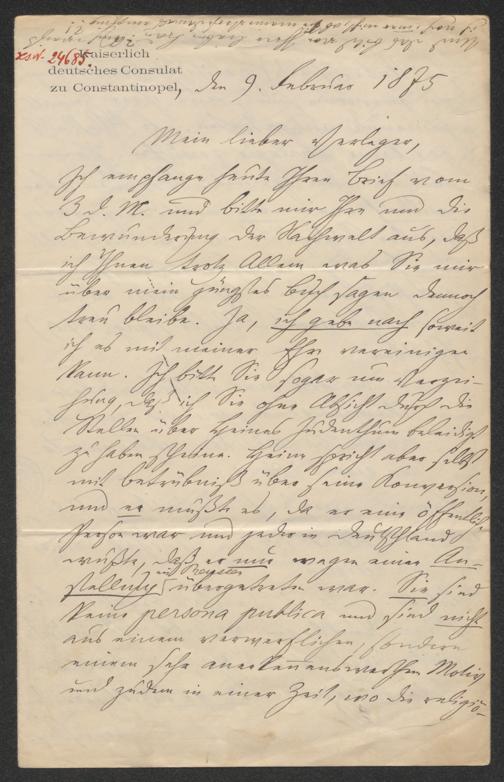 I.N. 24685.
Kaiserlich
deutsches Consulat
zu Constantinopel, den 9. Februar 1875
Mein lieber Verleger,
Ich empfange heute Ihren Brief vom
3 d. M. und bitte mir Ihre und die
Bewunderung der Nachwelt aus, daß
ich Ihnen trotz Allem was Sie mir
über mein jüngstes Buch sagen dennoch
treu bleibe. Ja, ich gebe nach soweit
ich es mit meiner Ehre vereinigen
kann. Ich bitte Sie sogar um Verzei-
hung, daß ich Sie ohne Absicht durch die
Stellen über Heines Judenthum beleidigt
zu haben scheine. Heine spricht aber selbst
mit Betrübniß über seine Konversion,
und er mußte es, da er eine öffentliche
Person war und jeder in Deutschland
wußte, daß er nur wegen einer An-
stellung in Preußen übergetreten war. Sie sind
keine persona publica und sind nicht
aus einem verwerflichen, sondern
einem sehr anerkennenswerthen Motiv
und zudem in einer Zeit, wo die religiö-